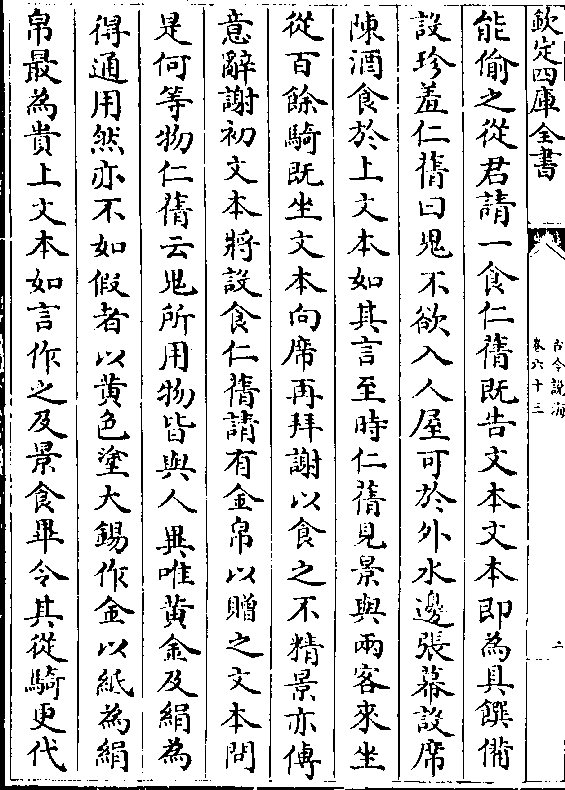 欽定四庫全書
古今說海
卷六十三
二
能偷之從君請一食仁蒨既告文本文本即為具饌備
設珍羞仁蒨曰鬼不欲入人屋可於外水邊張幕設席
陳酒食於上文本如其言至時仁蒨見景與兩客來坐
從百餘騎既坐文本向席再拜謝以食之不精景亦傳
意辭謝初文本將設食仁蒨請有金帛以贈之文本問
是何等物仁蒨云鬼所用物皆與人異唯黃金及絹為
得通用然亦不如假者以黃色塗大錫作金以紙為絹
帛最為貴上文本如言作之及景食畢令其從騎更代